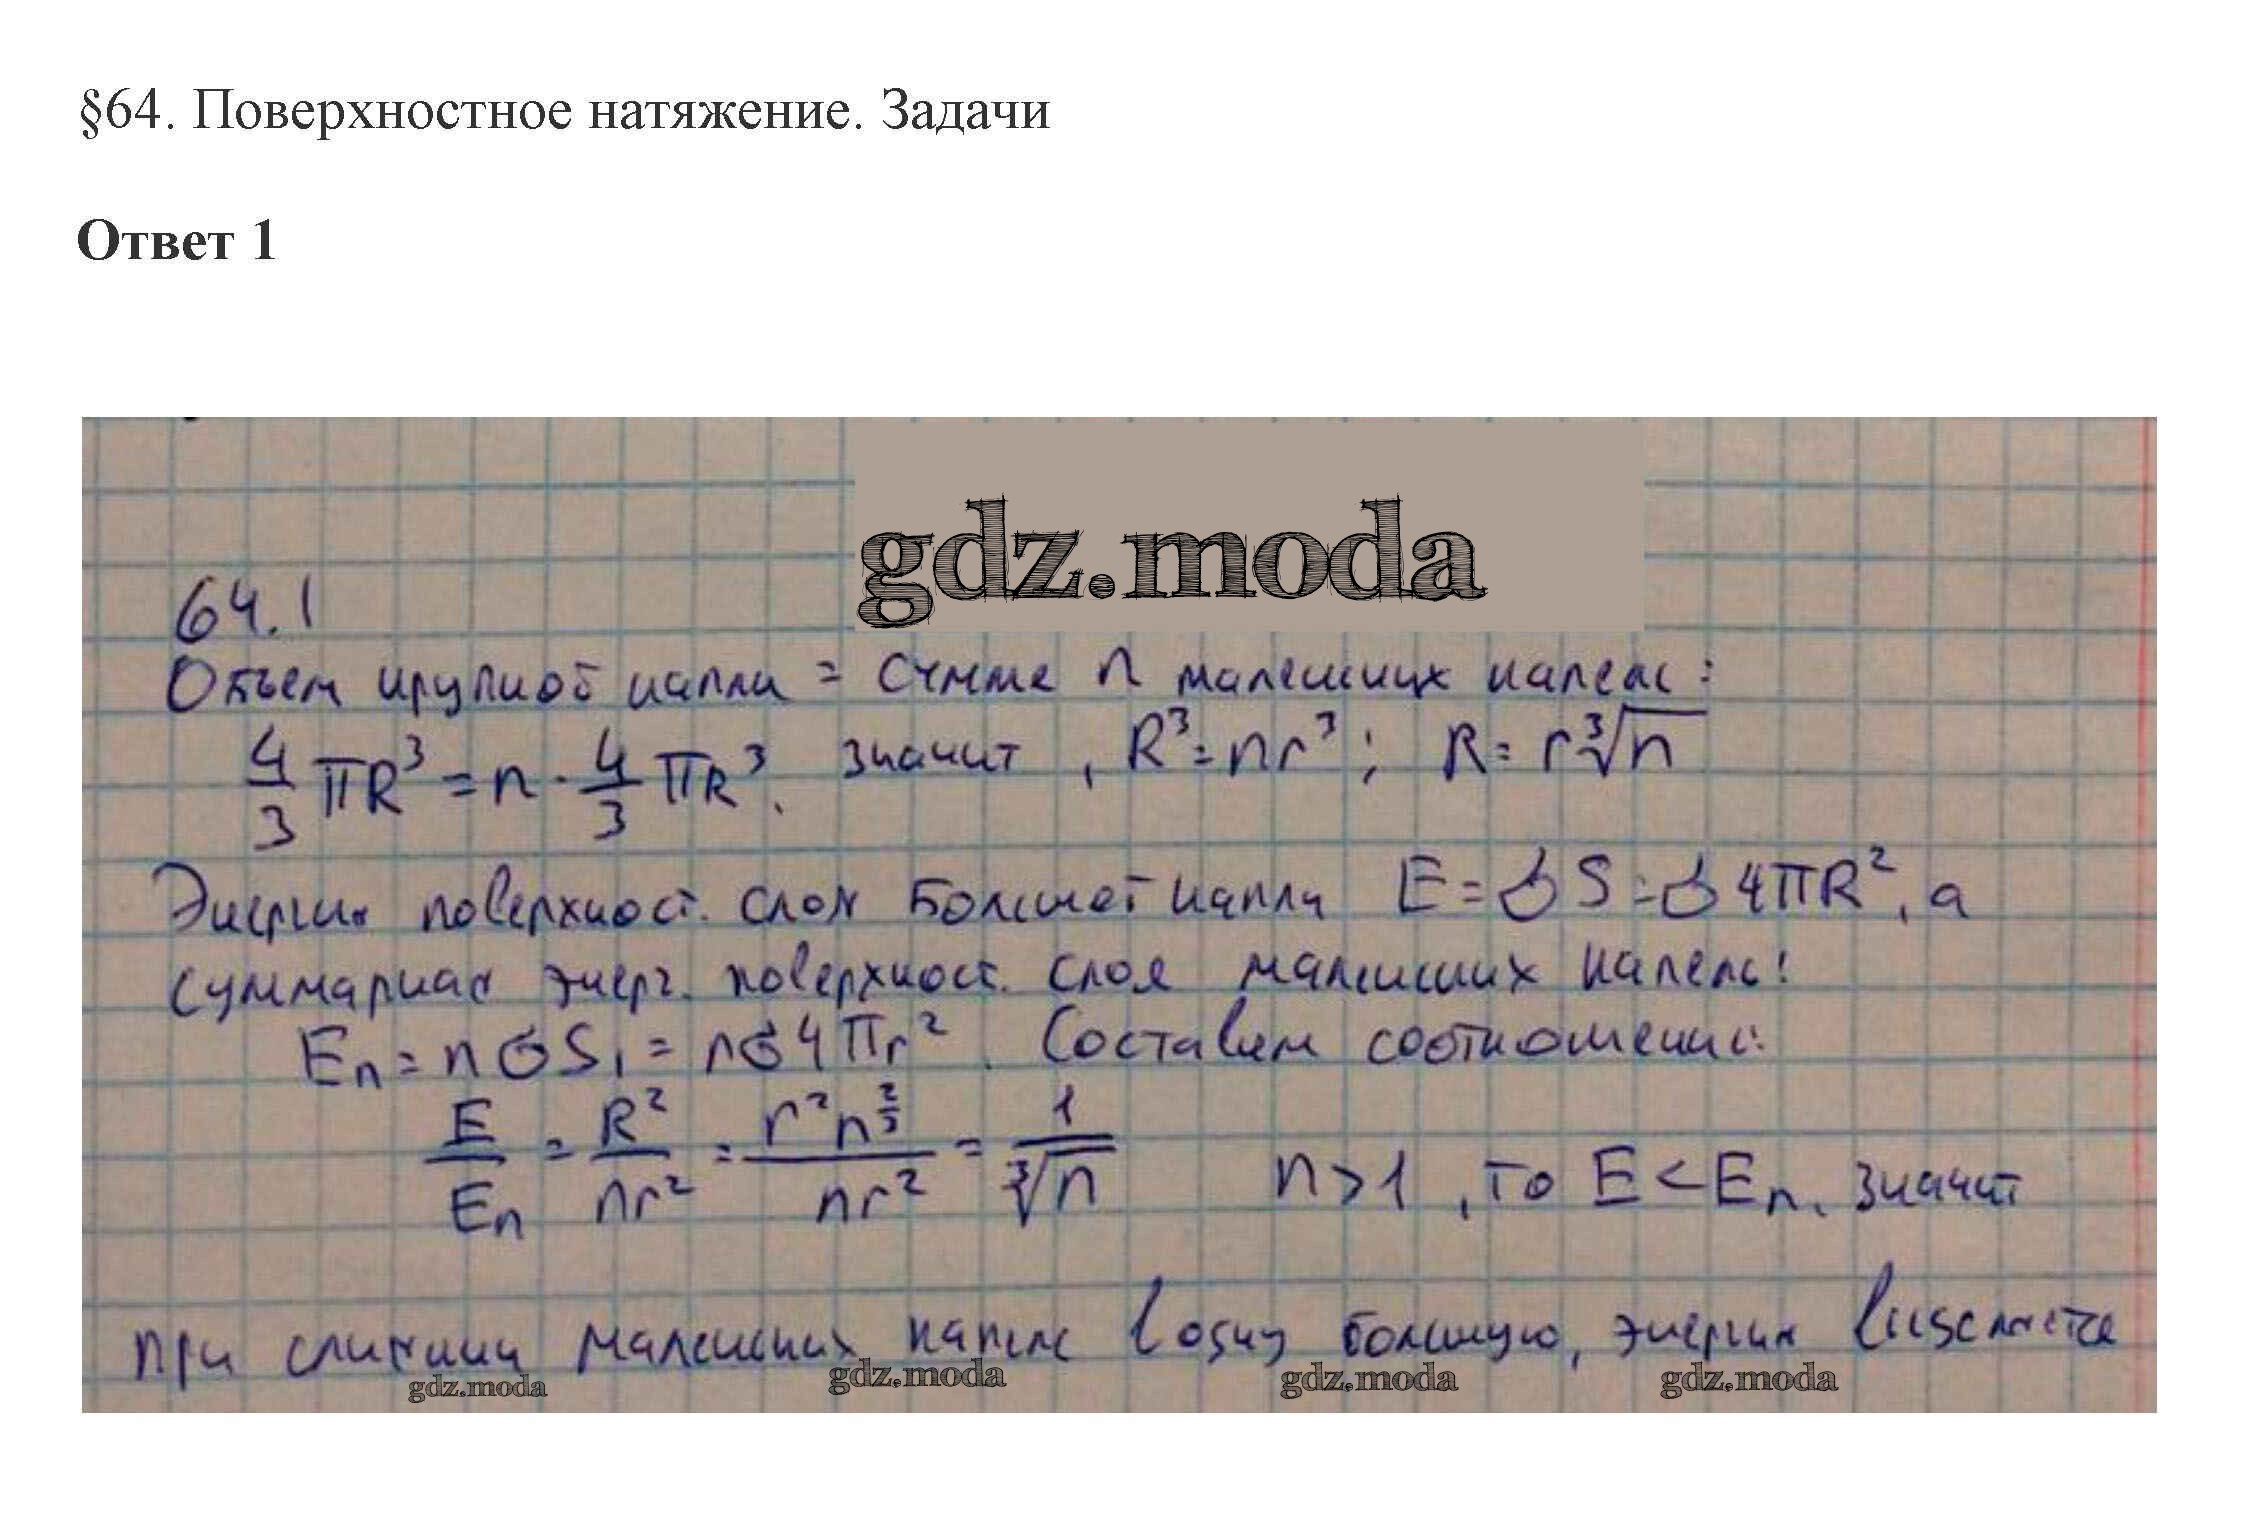 §64. Поверхностное натяжение. Задачи
Ответ 1
gdz.moda
64.1
Объем крупной капли = сумме n маленьких капель:
4/3 πR³ = n · 4/3 πR³. значит, R³ = nr³; R = r∛n
Энергия поверхност. слоя большой капли E = σS = σ4πR², а
суммарная энерг. поверхност. слоя маленьких капель:
Eₙ = nσS₁ = nσ4πr². Составим соотношение:
E/Eₙ = R²/nr² = r²n^(2/3)/nr² = 1/∛n n>1, то E < Eₙ. значит
при слиянии маленьких капель в одну большую, энергия выделяется
gdz.moda gdz.moda gdz.moda gdz.moda